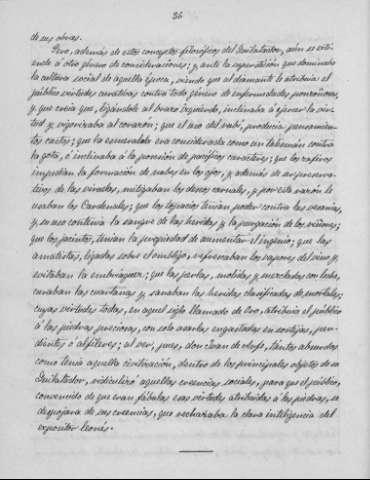 36
de sus obras.
Pero, además de estos conceptos filosóficos del Quilatador, aún se exti-
ende á otro género de consideraciones; y ante la superstición que dominaba
la cultura social de aquella época, viendo que al diamante le atribuía el
público virtudes curativas contra todo género de enfermedades ponzoñosas,
y que creía que, ligándole al brazo izquierdo, inclinaba á ejercer la vir-
tud y vigorizaba al corazón; que el uso del rubí, producía pensamien-
tos castos; que la esmeralda era considerada como un talismán contra
la gota, é inclinaba á la posesión de pacíficos caracteres; que los zafiros
impedían la formación de nubes en los ojos, y además de ser preserva-
tivos de las viruelas, mitigaban los deseos carnales, y por esta razón le
usaban los Cardenales; que los topacios tenían poder contra las vesanias,
y su uso contenía la sangre de las heridas y la purgación de los riñones;
que los jacintos, tenían la propiedad de aumentar el ingenio; que las
amatistas, ligadas sobre el ombligo, refrenaban los vapores del vino y
evitaban la embriaguez; que las perlas, molidas y mezcladas con leche,
curaban las cuartanas y sanaban las heridas clasificadas de mortales;
cuyas virtudes todas, en aquel siglo llamado de Oro, atribuía el público
á las piedras preciosas, con solo usarlas engastadas en sortijas, pen-
dientes ó alfileres; al ver, pues, don Juan de Arfe, tantos absurdos
como tenía aquella civilización, dentro de los principales objetos de su
Quilatador, ridiculizó aquellas creencias sociales, para que el público,
convencido de que eran fábulas esas virtudes atribuidas á las piedras, se
despojara de sus creencias, que rechazaba la clara inteligencia del
expositor leonés.